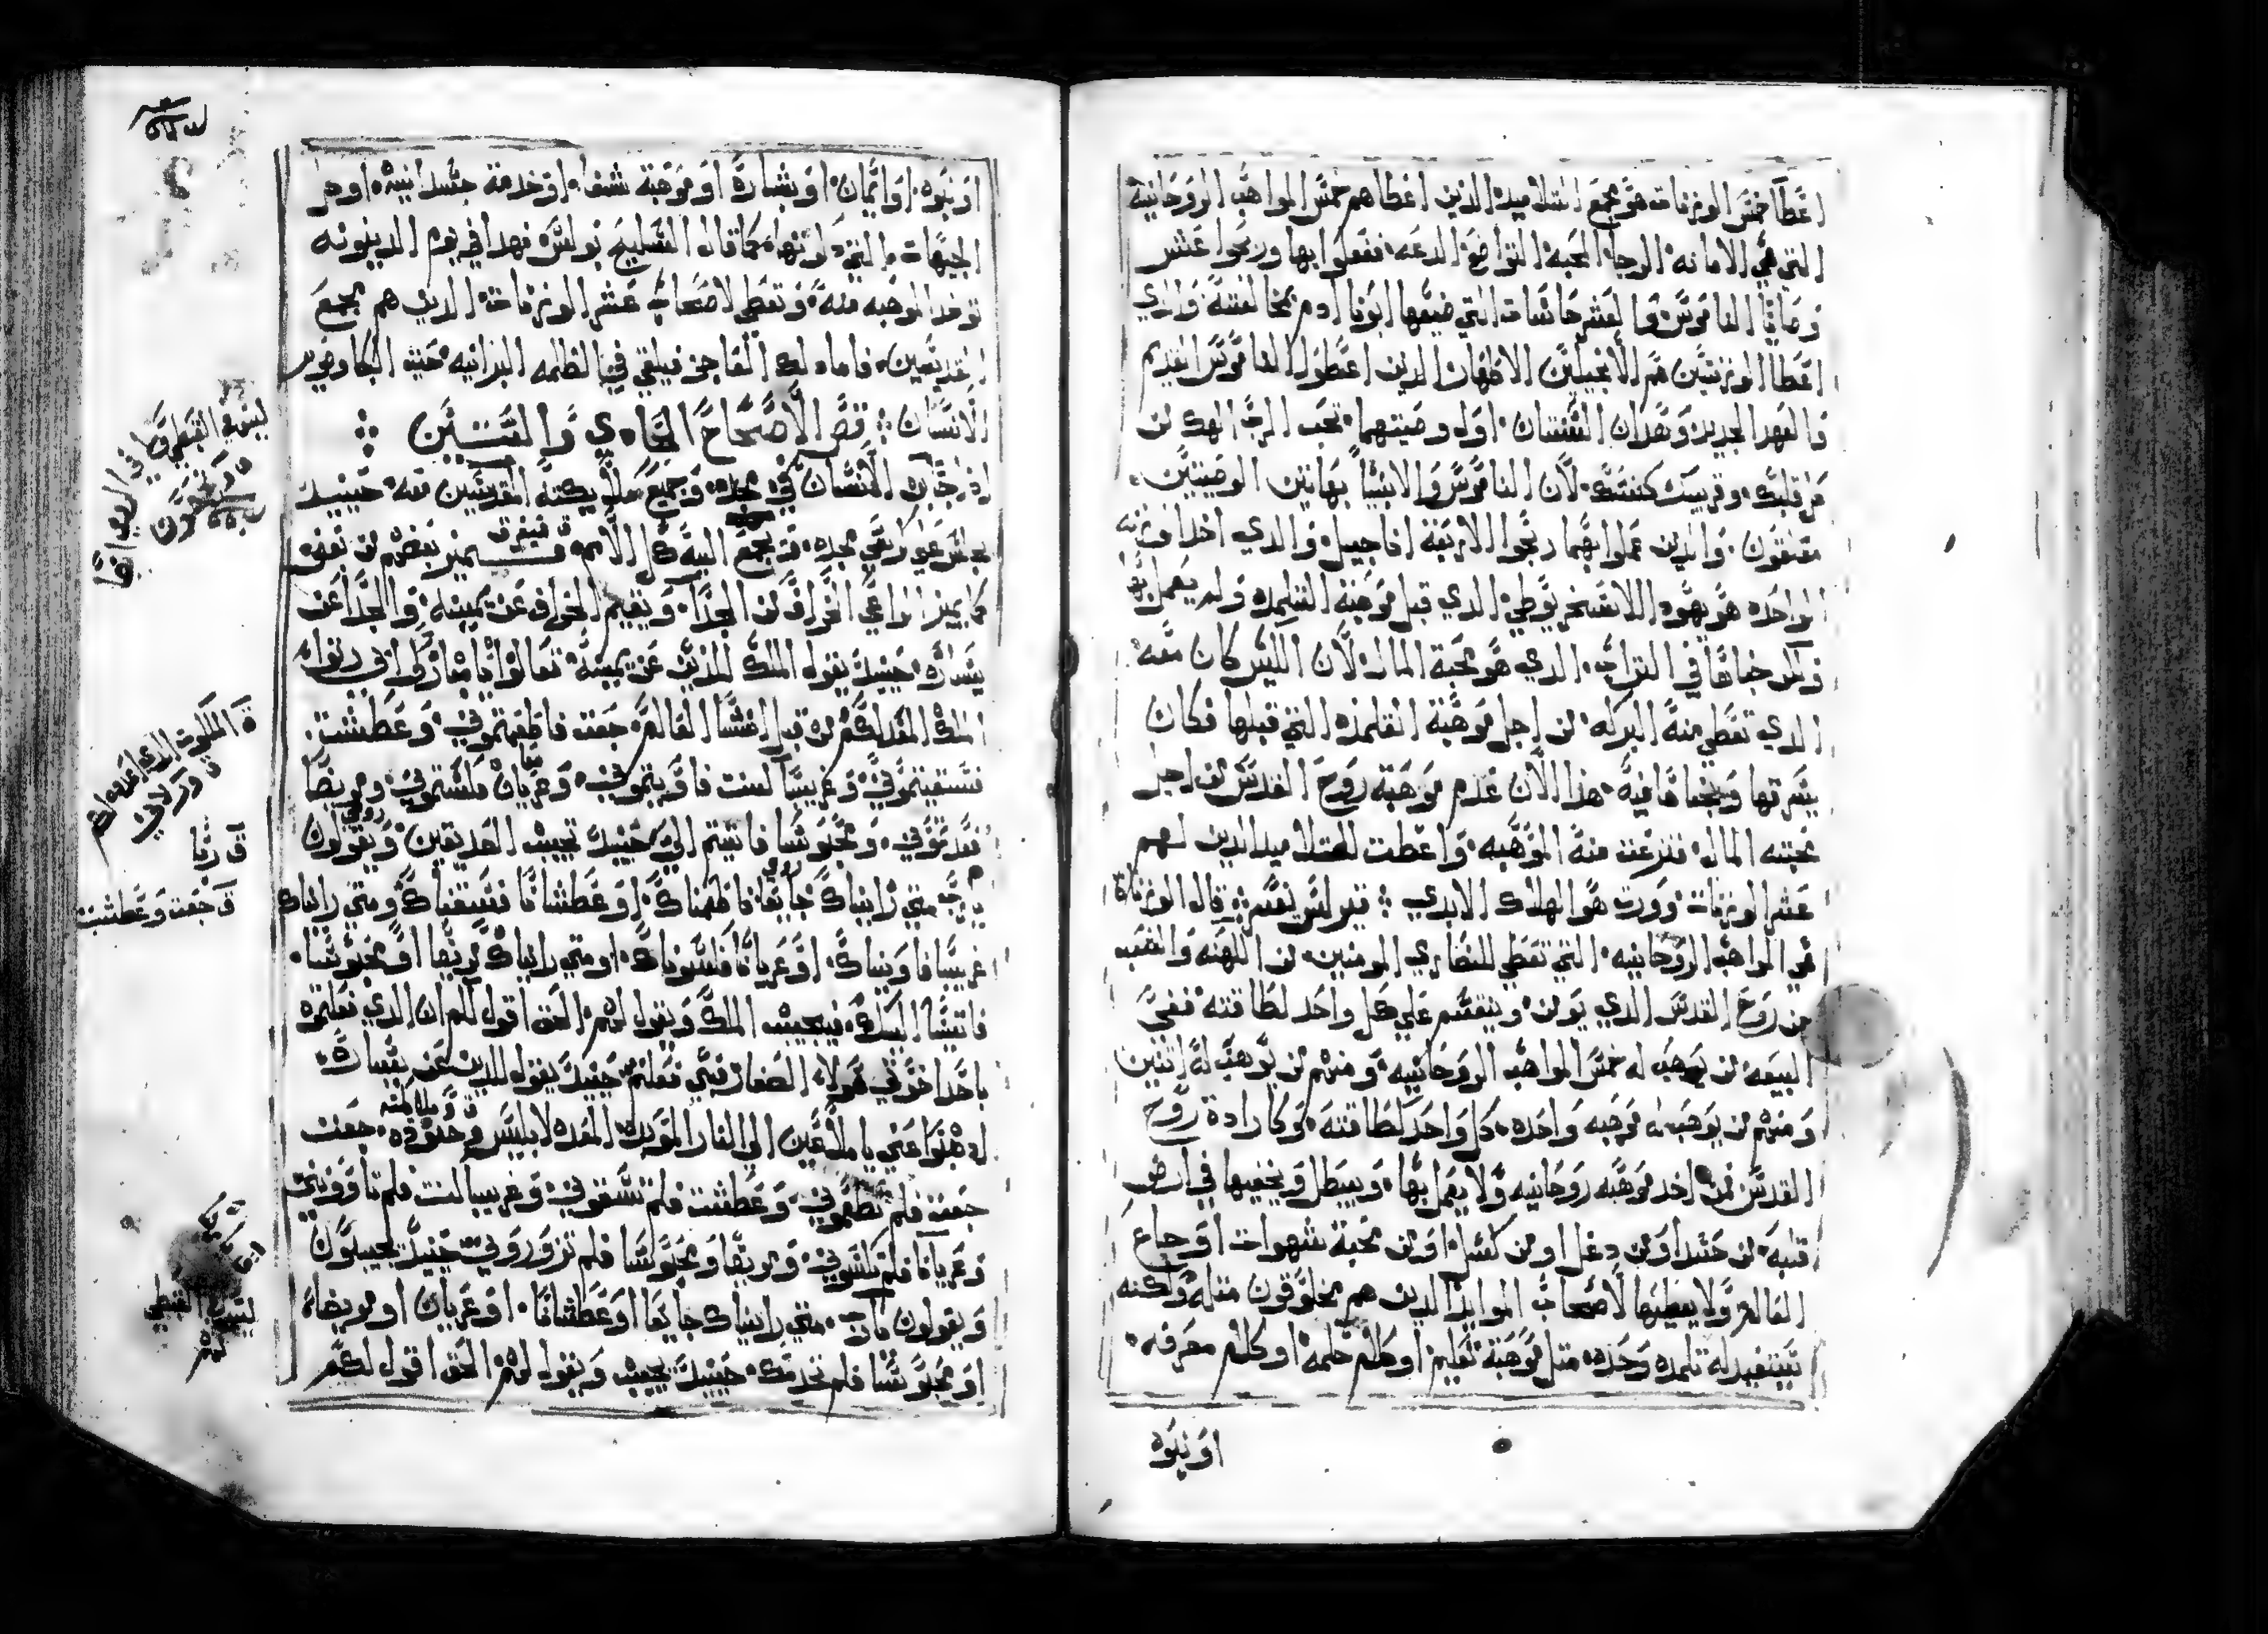 اعطا خمس الوزنات هو مجمع التلاميد الذين اعطاهم خمس المواهب الروحانية
التي هي الامانه الرجا المحبه التواضع الدعه ففعلوا بها وربحوا عشر
وصايا الناموس والعشر طاعات التي ضيعها ابونا ادم والذي
اعطا الوزنتين هم الانجيليين الاطهار الدين اعطوا الناموس القديم
والعهد الجديد وهدان الشيئان اول وصيتهما تحب الرب الهك من
قلبك وقريبك كنفسك لان الناموس والانبيا بهاتين الوصيتين
متعلقون والدين عملوا بهما ربحوا الاربعة اناجيل والدي اخد الوزنه
الواحده هو يهودا الاسخريوطي الدي قبل موهبة التلمده ولم يعمل بها
في التراب الدي هو محبة المال لان الكيس كان معه
الدي تعطي منه البركه من اجل موهبة التلمذه التي قبلها فكان
يسرقها هدا الان عدم موهبة روح القدس من اجل
محبته المال فنزعت منه الموهبه واعطت للتلاميد الدين لهم
عشر الوزنات وورت هو الهلاك الابدي قال الوزنات
هي المواهب الروحانيه التي تعطي للنصاري المومنين من الكهنه والشعب
من روح القدس الدي وينقسم علي كل واحد لطاقته ففي
البيعه من يوهب له خمس المواهب الروحانيه ومنهم من يوهب له اثنين
ومنهم من يوهب له موهبه واحده كل واحد لطاقته وكارادة روح
القدس فمن اخد موهبه روحانيه ولا يعمل بها ويبطل ويخفيها في ارض
قلبه من حسد او من دغل او من كسل او من محبة شهوات اوجاع
العالم ولا يعطيها لاصحاب الموايد الدين هم مخلوقون متله ولكنه
له تلمده وحده متل موهبة تعليم او كلام حكمه او كلام معرفه
او نبوه
او نبوه او ايمان او بشاره او موهبة شفا او خدمة جسدانيه او حل
كما قال السليح بولس فهدا في يوم الدينونه
توخد الموهبه منه وتعطي لاصحاب عشر الوزنات الدين هم مجمع
القديسين فاما دلك العاجز فيلقي في الظلمه البرانيه حيث البكا وصرير
الاسنان فص الاصحاح الحادي والستين
ادا جا ابن الانسان في مجده وجميع ملايكته القديسين معه حينيد
يجلس علي كرسي مجده وتجمع اليه كل الامم فيميز بعضهم من بعض
كما يميز الراعي الخراف من الجدا ويقيم الخراف عن يمينه والجدا عن
يساره حينيد يقول الملك للذين عن يمينه تعالوا يا مباركي ابي رثوا
الملك المعد لكم من قبل انشا العالم جعت فاطعمتموني وعطشت
فسقيتموني وغريبا كنت فاويتموني وعريان فكسوتموني ومريضا
فعدتموني ومحبوسا فاتيتم الي حينيد تجيب الصديقين ويقولون
يا رب متي رايناك جايعا فاطعمناك او عطشانا فسقيناك ومتي رايناك
غريبا فاويناك او عريانا فكسوناك او متي رايناك مريضا او محبوسا
فاتينا اليك فيجيب الملك ويقول لهم الحق اقول لكم ان الدي فعلتموه
باحد اخوتي هولاء الصغار فبي فعلتم حينيد يقول للدين عن يساره
ادهبوا عني يا ملاعين الي النار الموبده المعده لابليس وجنوده جعت
جعت فلم تطعموني وعطشت فلم تسقوني وغريبا كنت فلم تاووني
وعريانا فلم تكسوني ومريضا ومحبوسا فلم تزوروني حينيد يجيبون
ويقولون يا رب متي رايناك جايعا او عطشانا او عريان او مريضا
او محبوسا فلم نخدمك حينيد يجيب ويقول لهم الحق اقول لكم
ليس في القبطي
ق الملكوت الدي اعده لكم
ق جعت وعطشت
ليس في القبطي